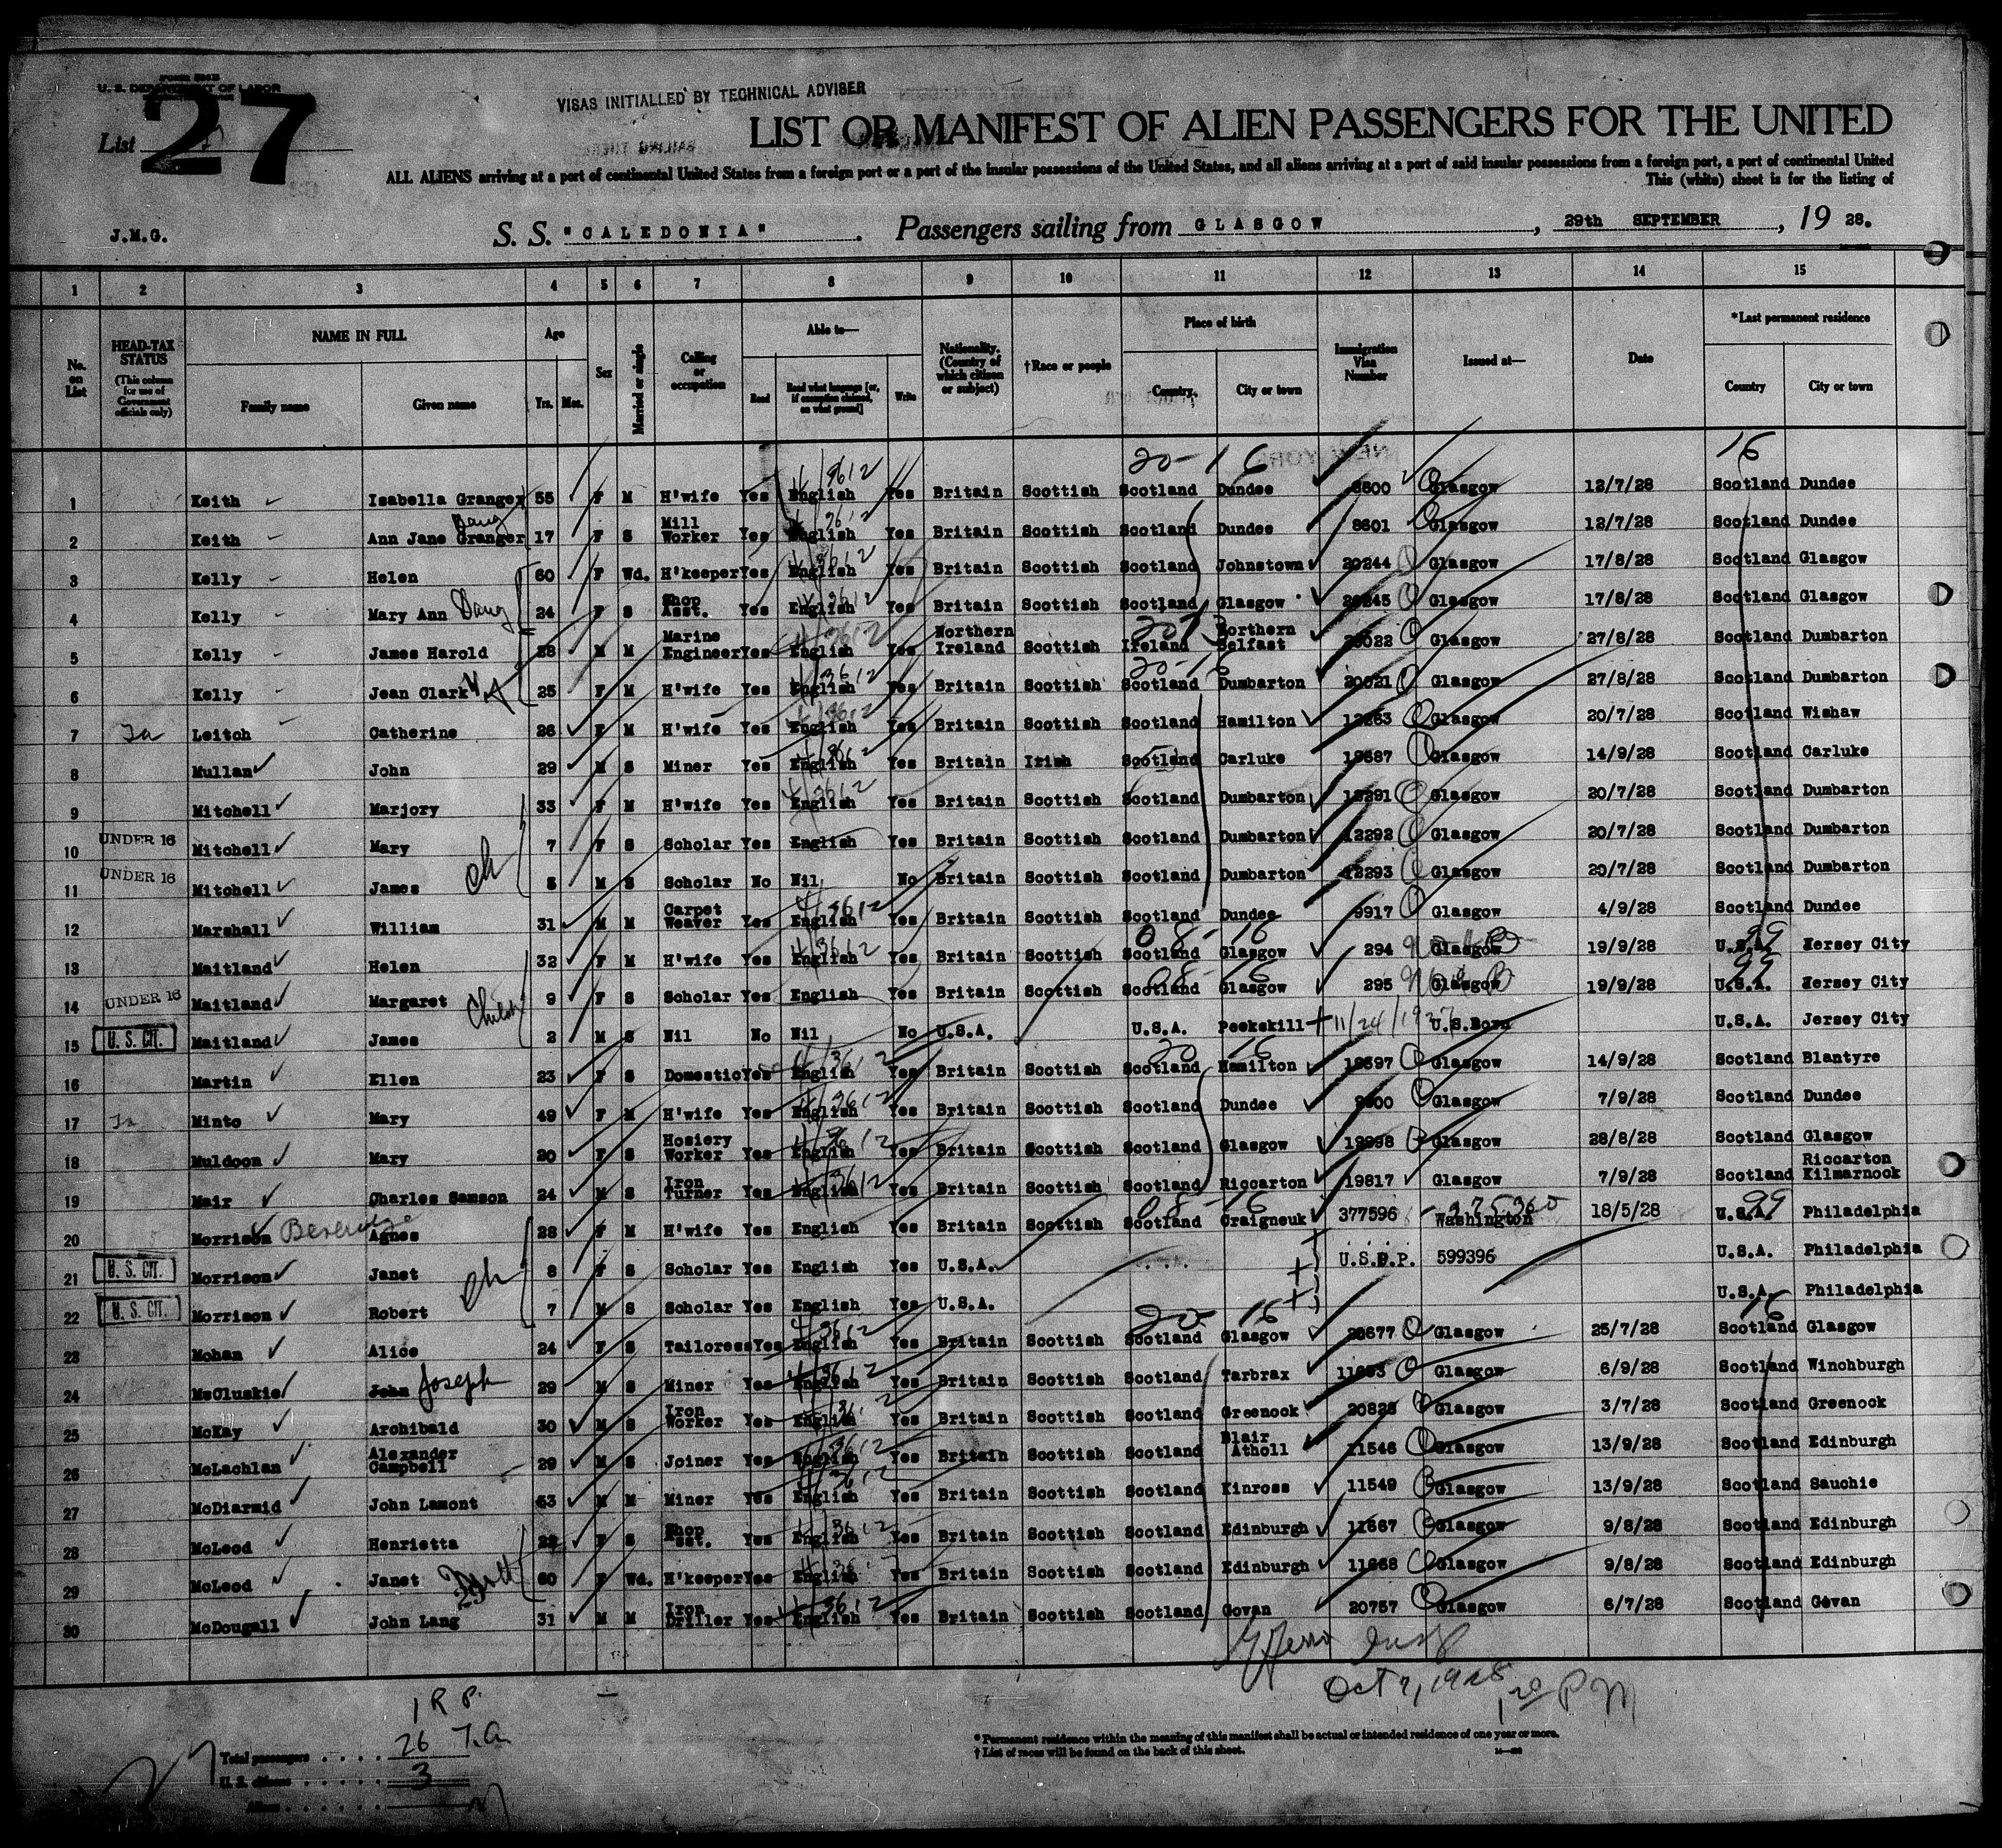 FORM 500B
U. S. DEPARTMENT OF LABOR
List 27
VISAS INITIALLED BY TECHNICAL ADVISER
LIST OR MANIFEST OF ALIEN PASSENGERS FOR THE UNITED
ALL ALIENS arriving at a port of continental United States from a foreign port or a part of the insular possessions of the United States, and all aliens arriving at a port of said insular possessions from a foreign port, a port of continental United
This (white) sheet is for the listing of
J.M.G.
S. S. "CALEDONIA". Passengers sailing from GLASGOW, 29th SEPTEMBER, 19 28.
1 2 3 4 5 6 7 8 9 10 11 12 13 14 15
No. on List
HEAD-TAX STATUS (This column for use of Government officials only)
NAME IN FULL
Family name Given name
Age
Yrs. Mos.
Sex
Married or single
Calling or occupation
Able to—
Read Read what language [or, if exemption claimed, on what ground] Write
Nationality. (Country of which citizen or subject)
†Race or people
Place of birth
Country. City or town
Immigration Visa Number
Issued at—
Date
*Last permanent residence
Country City or town
20-16 16
1 Keith Isabella Granger 55 F M H'wife Yes English Yes Britain Scottish Scotland Dundee 8600 Glasgow 12/7/28 Scotland Dundee
2 Keith Ann Jane Granger Daug 17 F S Mill Worker Yes English Yes Britain Scottish Scotland Dundee 8601 Glasgow 12/7/28 Scotland Dundee
3 Kelly Helen 60 F Wd. H'keeper Yes English Yes Britain Scottish Scotland Johnstown 20244 Glasgow 17/8/28 Scotland Glasgow
4 Kelly Mary Ann Daug 24 F S Shop Asst. Yes English Yes Britain Scottish Scotland Glasgow 20245 Glasgow 17/8/28 Scotland Glasgow
5 Kelly James Harold 28 M M Marine Engineer Yes English Yes Northern Ireland Scottish Ireland Northern Belfast 20022 Glasgow 27/8/28 Scotland Dumbarton
6 Kelly Jean Clark 25 F M H'wife Yes English Yes Britain Scottish Scotland Dumbarton 20021 Glasgow 27/8/28 Scotland Dumbarton
7 Leitch Catherine 26 F M H'wife Yes English Yes Britain Scottish Scotland Hamilton Glasgow 20/7/28 Scotland Wishaw
8 Mullan John 29 M S Miner Yes English Yes Britain Irish Scotland Carluke Glasgow 14/9/28 Scotland Carluke
9 Mitchell Marjory 33 F M H'wife Yes English Yes Britain Scottish Scotland Dumbarton Glasgow 20/7/28 Scotland Dumbarton
10 UNDER 16 Mitchell Mary 7 F S Scholar Yes English Yes Britain Scottish Scotland Dumbarton 12292 Glasgow 20/7/28 Scotland Dumbarton
11 UNDER 16 Mitchell James Ch 5 M S Scholar No Nil No Britain Scottish Scotland Dumbarton 12293 Glasgow 20/7/28 Scotland Dumbarton
12 Marshall William 31 M M Carpet Weaver Yes English Yes Britain Scottish Scotland Dundee 9917 Glasgow 4/9/28 Scotland Dundee
13 Maitland Helen 32 F M H'wife Yes English Yes Britain Scottish Scotland Glasgow 294 Glasgow 19/9/28 U.S.A. Jersey City
14 UNDER 16 Maitland Margaret 9 F S Scholar Yes English Yes Britain Scottish Scotland Glasgow 295 Glasgow 19/9/28 U.S.A. Jersey City
15 U. S. CIT. Maitland James 2 M S Nil No Nil No U.S.A. U.S.A. Peekskill 11/24/1927 U.S.Born U.S.A. Jersey City
16 Martin Ellen 23 F S Domestic Yes English Yes Britain Scottish Scotland Hamilton Glasgow 14/9/28 Scotland Blantyre
17 Minto Mary 49 F M H'wife Yes English Yes Britain Scottish Scotland Dundee Glasgow 7/9/28 Scotland Dundee
18 Muldoon Mary 20 F S Hosiery Worker Yes English Yes Britain Scottish Scotland Glasgow Glasgow 28/8/28 Scotland Glasgow
19 Mair Charles Samson 24 M S Iron Turner Yes English Yes Britain Scottish Scotland Riccarton 19817 Glasgow 7/9/28 Scotland Riccarton Kilmarnock
20 Morrison Agnes 28 F M H'wife Yes English Yes Britain Scottish Scotland Craigneuk 377596 Washington 18/5/28 U.S.A. Philadelphia
21 U. S. CIT. Morrison Janet 8 F S Scholar Yes English Yes U.S.A. U.S.P.P. 599396 U.S.A. Philadelphia
22 U. S. CIT. Morrison Robert Ch 7 M S Scholar Yes English Yes U.S.A. U.S.A. Philadelphia
23 Mohan Alice 24 F S Tailoress Yes English Yes Britain Scottish Scotland Glasgow 20677 Glasgow 25/7/28 Scotland Glasgow
24 McCluskie John Joseph 29 M S Miner Yes English Yes Britain Scottish Scotland Tarbrax Glasgow 6/9/28 Scotland Winchburgh
25 McKay Archibald 30 M S Iron Worker Yes English Yes Britain Scottish Scotland Greenock Glasgow 3/7/28 Scotland Greenock
26 McLachlan Alexander Campbell 29 M S Joiner Yes English Yes Britain Scottish Scotland Blair Atholl 11546 Glasgow 13/9/28 Scotland Edinburgh
27 McDiarmid John Lamont 53 M M Miner Yes English Yes Britain Scottish Scotland Kinross 11549 Glasgow 13/9/28 Scotland Sauchie
28 McLeod Henrietta 22 F S Shop Asst. Yes English Yes Britain Scottish Scotland Edinburgh 11667 Glasgow 9/8/28 Scotland Edinburgh
29 McLeod Janet 60 F Wd. H'keeper Yes English Yes Britain Scottish Scotland Edinburgh 11668 Glasgow 9/8/28 Scotland Edinburgh
30 McDougall John Lang 31 M M Iron Driller Yes English Yes Britain Scottish Scotland Govan 20757 Glasgow 6/7/28 Scotland Govan
Oct 7, 1928 1 20 PM
1 R P.
26 T.A.
Total passengers
U. S. citizens 3
Aliens
* Permanent residence within the meaning of this manifest shall be actual or intended residence of one year or more.
† List of races will be found on the back of this sheet.